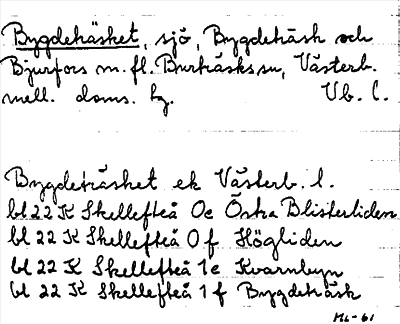 Bygdeträsket, sjö, Bygdeträsk och
Bjurfors m.fl. Burträsks sn, Västerb.
mell. doms. hg. Vb. l.
Bygdeträsket ek Västerb. l.
bl 22 K Skellefteå 0e Östra Blisterliden
bl 22 K Skellefteå 0f Högliden
bl 22 K Skellefteå 1e Kvarnbyn
bl 22 K Skellefteå 1f Bygdeträsk